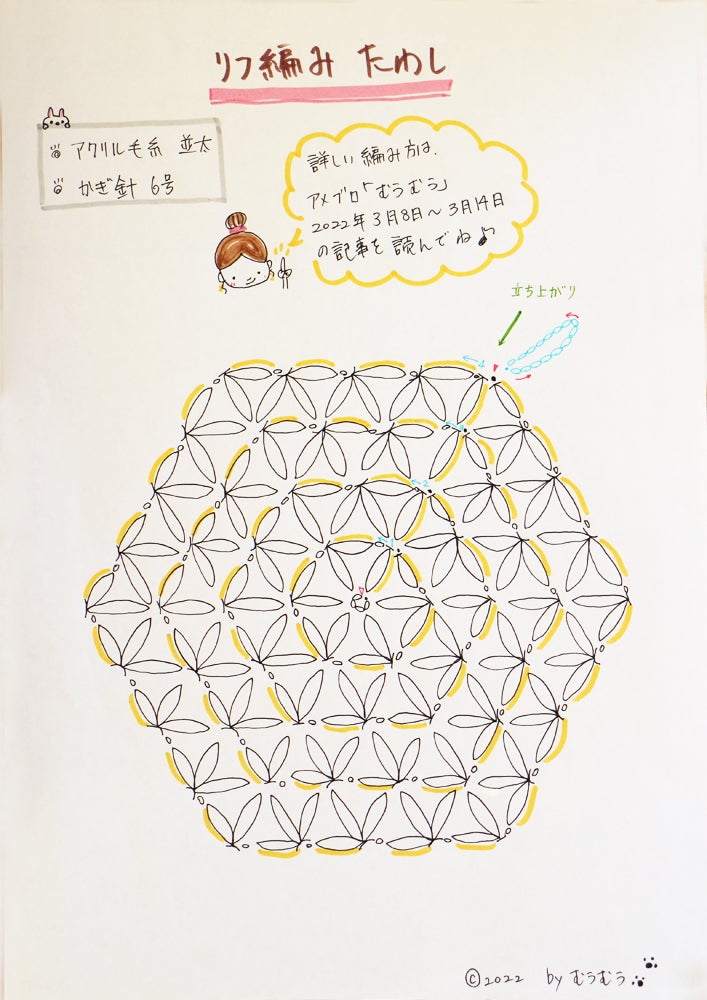 リフ編み たわし
アクリル毛糸 並太
かぎ針 6号
詳しい編み方は、
アメブロ「むうむう」
2022年3月8日～3月14日
の記事を読んでね♪
立ち上がり
4
3
2
1
©2022 by むうむう